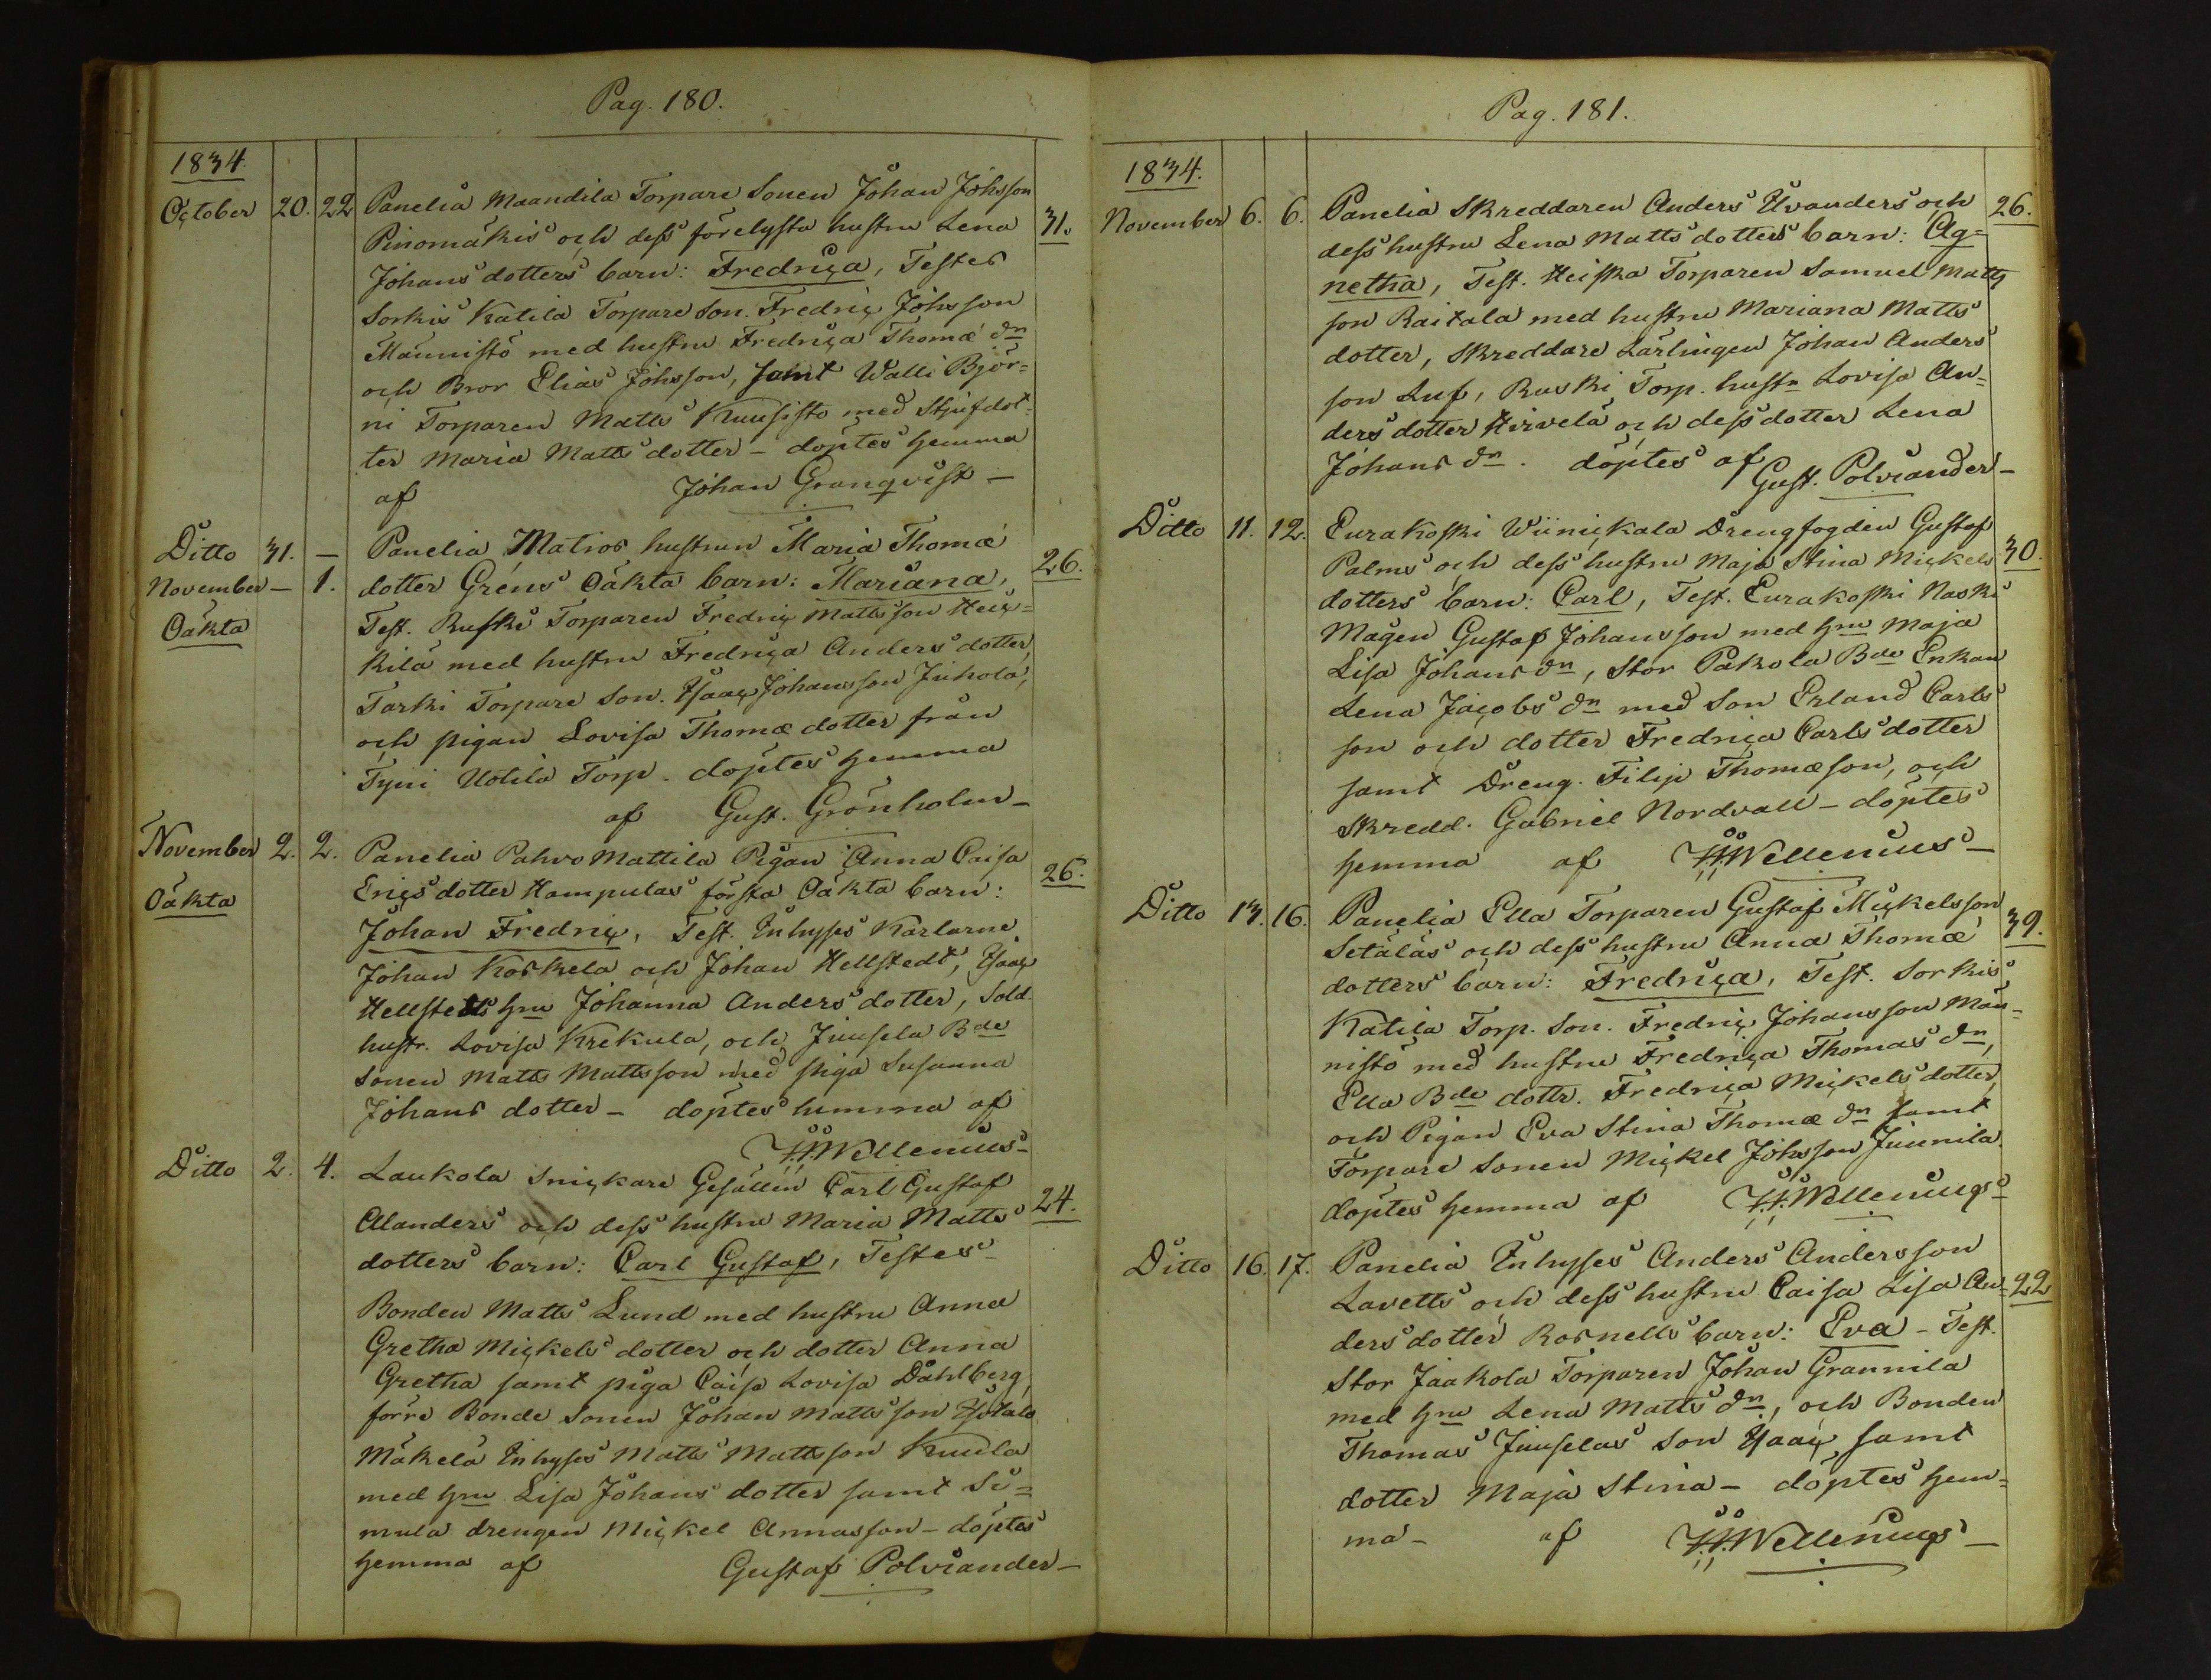 Pag. 180.
1834.
October 20. 22 Panelia Maandila Torpare Sonen Johan Johsson 31.
Pinomäkis och dess förelysta hustru Lena
Johans dotters barn: Fredrica, Testes
Sorkis Katila Torpare Son. Fredric Johsson
Männistö med hustru Fredrica Thomæ dn
och Bror Elias Johsson, Jemt Walli Björ=
ni Torparen Matts Kuusisto med Stjufdot=
ter Maria Matts dotter – döptes hemma
af Johan Granqvist –
Ditto 31. – Panelia Matros hustrun Maria Thomæ
November – 1. dotter Gréns Oäkta barn: Mariana, 26.
Oäkta Test. Ruski Torparen Fredric Mattsson Heic=
kilä med hustru Fredrica Anders dotter,
Tarki Torpare Son. Isaac Johansson Juhola,
och pigan Lovisa Thomæ dotter från
Tyni Uotila Torp. döptes hemma
af Gust. Grönholm –
November 2. 2. Panelia Pahvo Mattila Pigan Anna Caisa 26.
Oäkta Erics dotter Hampulas första Oäkta barn:
Johan Fredric, Test. Inhyses Karlarne
Johan Koskela och Johan Hellstedt, Isaac
Hellstedts hru Johanna Anders dotter, Sold.
hustr. Lovisa Krekula, och Juusela Bde
Sonen Matts Mattsson med piga Susanna
Johans dotter – döptes hemma af
Wellenius –
Ditto 2. 4. Laukola Snickare Gesällen Carl Gustaf 24.
Alanders och dess hustru Maria Matts
dotters barn: Carl Gustaf, Testes
Bonden Matts Lund med hustru Anna
Gretha Mickels dotter och dotter Anna
Gretha samt piga Caisa Lovisa Dahlberg,
förre Bonde Sonen Johan Mattsson Isotalo
Mäkelä Inhyses Matts Mattsson Knuula
med hru Lisa Johans dotter samt Su=
mula drengen Mickel Annasson – döptes
hemma af Gustaf Polviander –
Pag. 181.
1834.
November 6. 6. Panelia Skreddaren Anders Uvanders och 26.
dess hustru Lena Matts dotters barn: Ag=
netha, Test. Heiska Torparen Samuel Matts
son Raitala med hustru Mariana Matts
dotter, Skreddare Lärlingen Johan Anders
son Luf, Ruski Torp. hustr Lovisa An=
ders dotter Hirvelä och dess dotter Lena
Johans dn. döptes af Gust. Polviander –
Ditto 11. 12. Eurakoski Wiinickala Drengfogden Gustaf 30.
Palms och dess hustru Maja Stina Mickels
dotters barn: Carl, Test. Eurakoski Naski
Mågen Gustaf Johansson med hru Maja
Lisa Johans dn, Stor Pakola Bde Enkan
Lena Jacobs dn med Son Erland Carls
son och dotter Fredrica Carls dotter
samt Dreng. Filip Thomæson, och
Skredd. Gabriel Nordvall – döptes
hemma af Wellenius –
Ditto 13. 16. Panelia Ella Torparen Gustaf Mickelsson 39.
Setäläs och dess hustru Anna Thomæ
dotters barn: Fredrica, Test. Sorkis
Katila Torp. Son. Fredric Johansson Män=
nistö med hustru Fredrica Thomas dn,
Ella Bde dottr. Fredrica Mickels dotter,
och Pigan Eva Stina Thomæ dn samt
Torpare Sonen Mickel Johsson Juunila.
döptes hemma af Wellenius
Ditto 16. 17. Panelia Inhyses Anders Andersson
Lavetts och dess hustru Caisa Lisa An= 22
ders dotter Rosnells barn: Eva – Test.
Stor Jaakola Torparen Johan Grannila
med hru Lena Matts dn, och Bonden
Thomas Juuselas Son Isaac samt
dotter Maja Stina – döptes hem=
ma – af Wellenius –